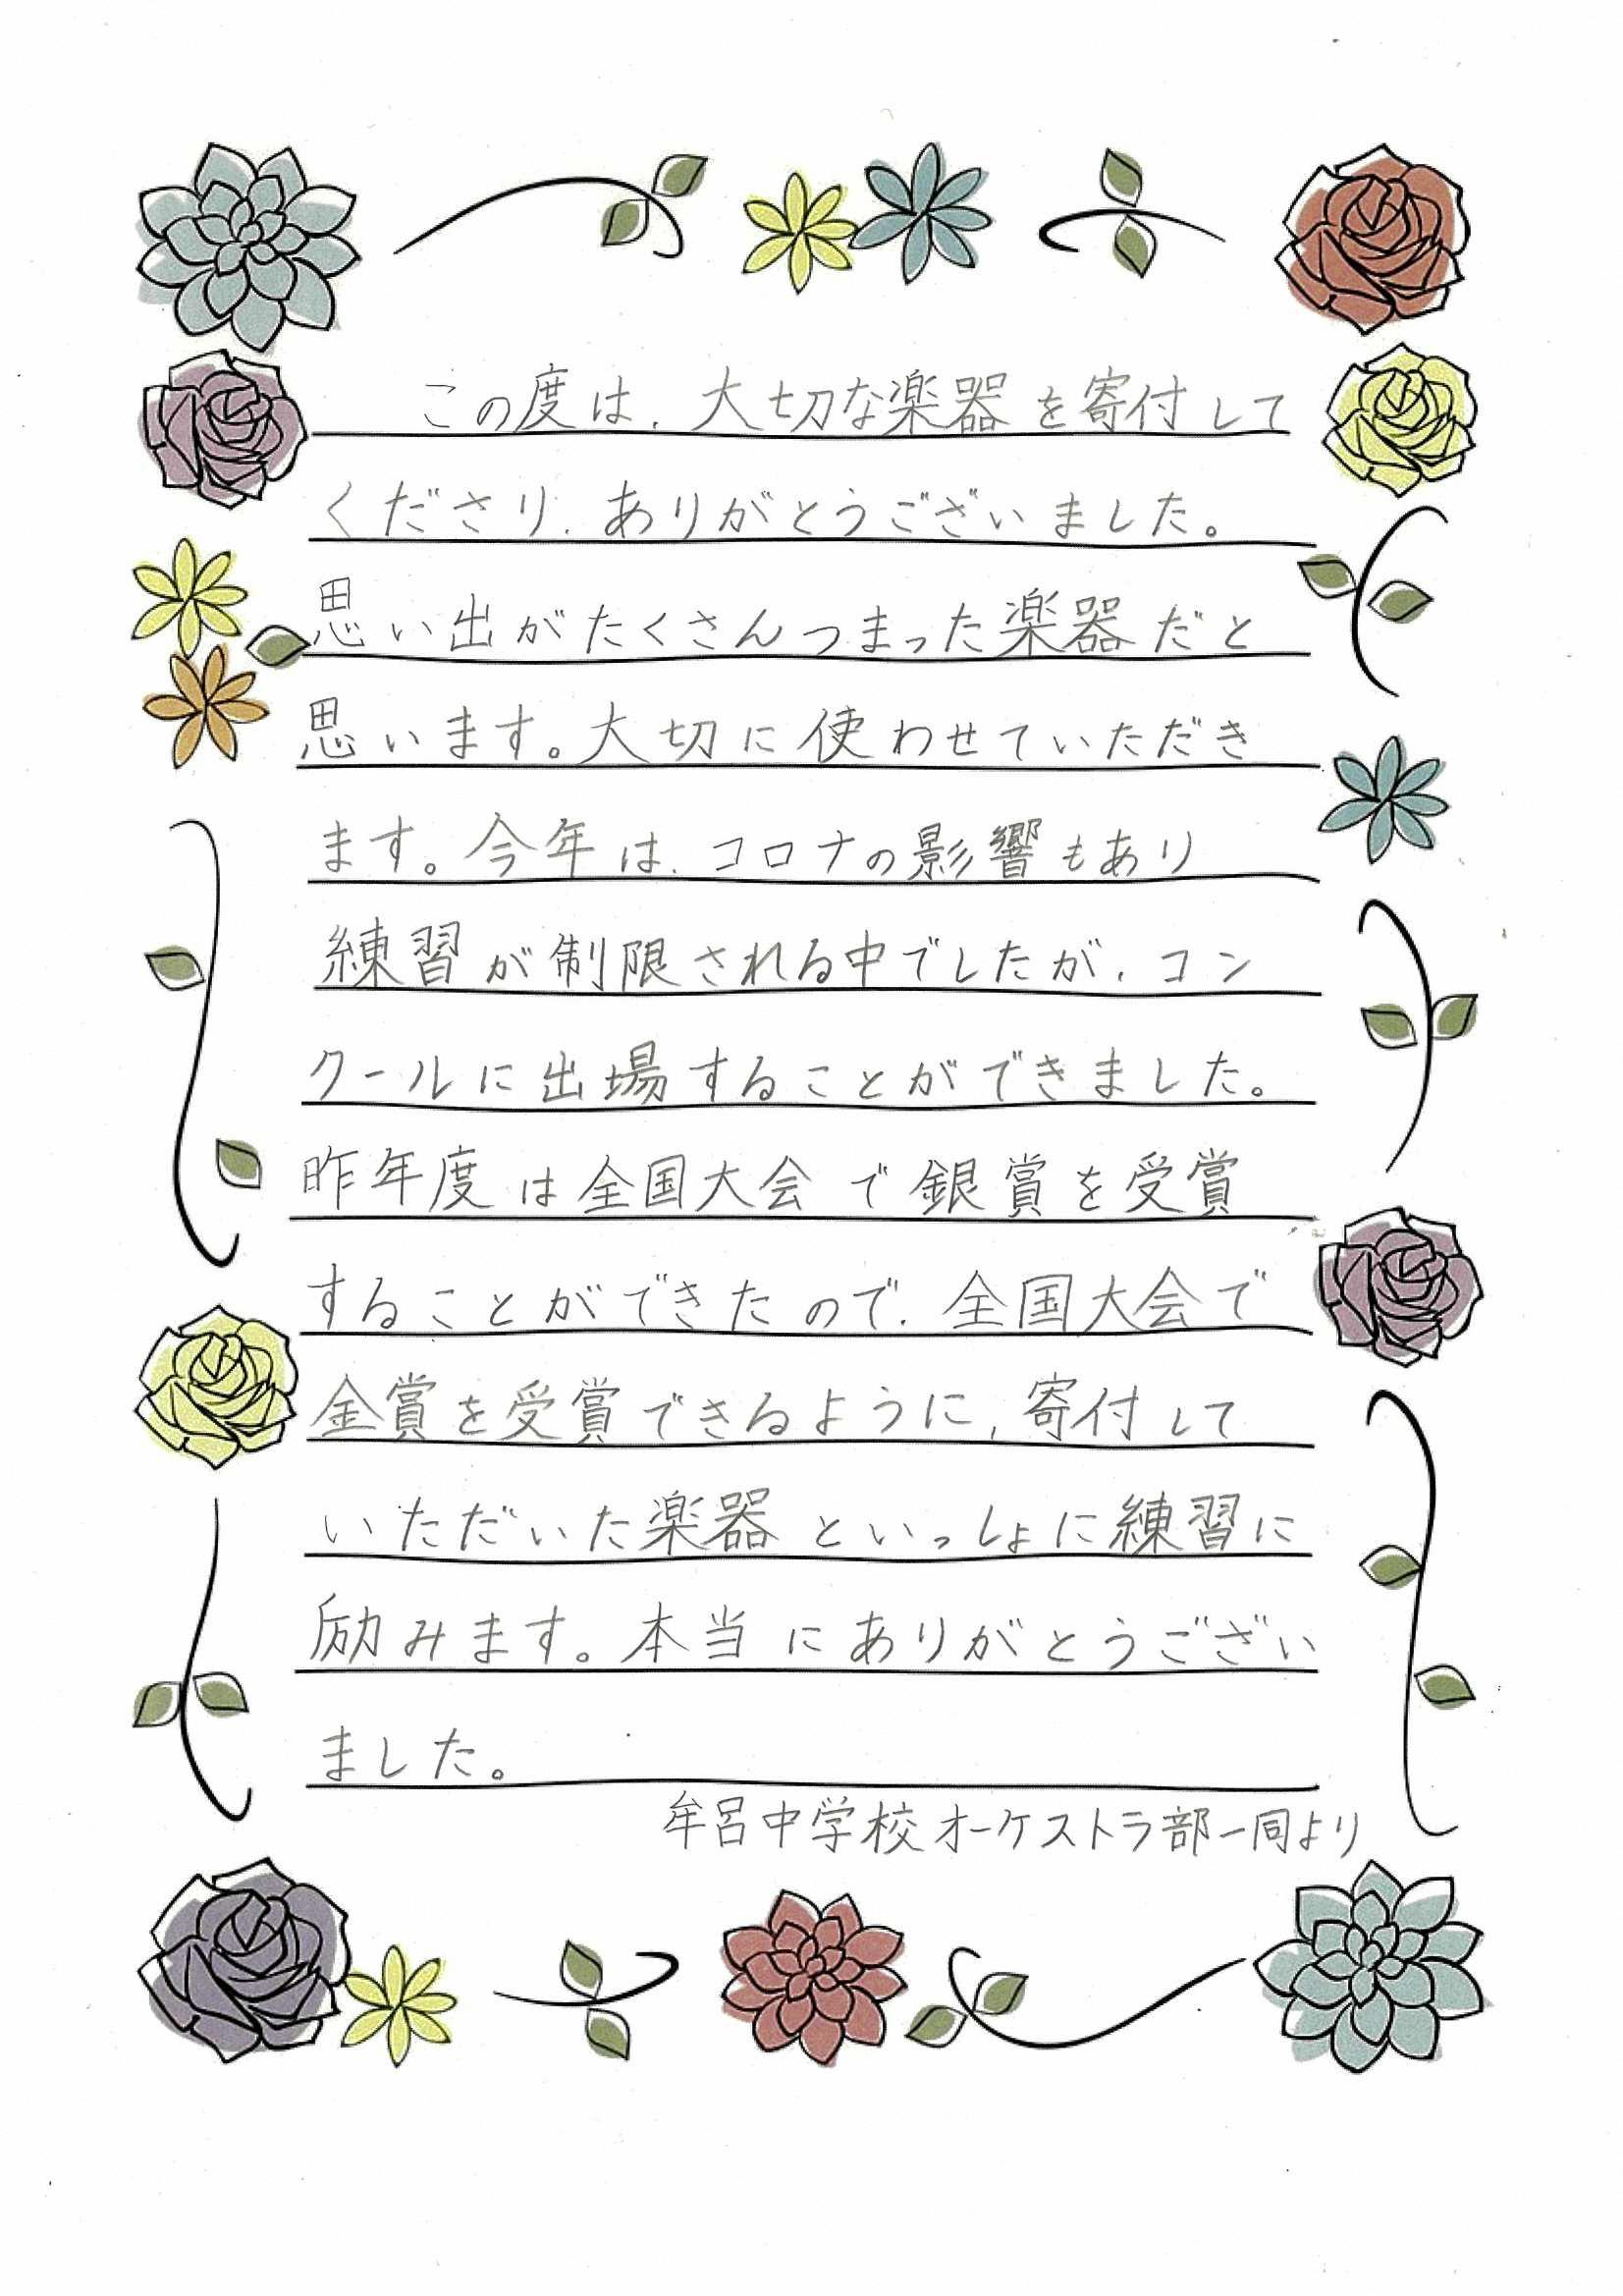 この度は、大切な楽器を寄付して
くださり、ありがとうございました。
思い出がたくさんつまった楽器だと
思います。大切に使わせていただき
ます。今年は、コロナの影響もあり
練習が制限される中でしたが、コン
クールに出場することができました。
昨年度は全国大会で銀賞を受賞
することができたので、全国大会で
金賞を受賞できるように、寄付して
いただいた楽器といっしょに練習に
励みます。本当にありがとうござい
ました。
牟呂中学校オーケストラ部一同より